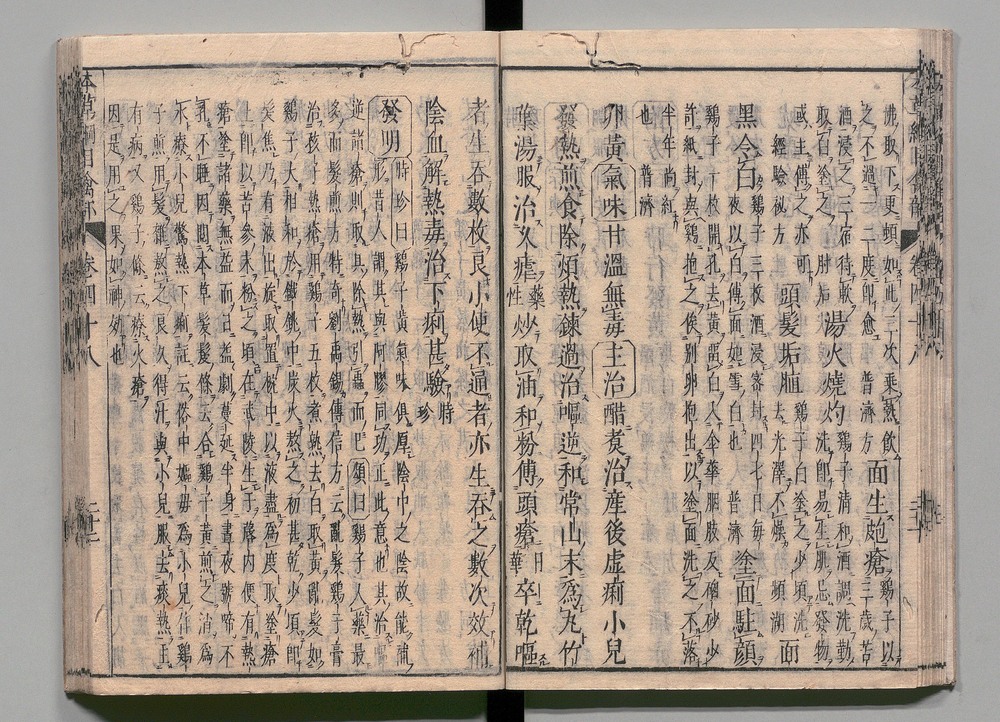 沸取下更頓如此三次乗熱飲
之不過一二度即愈 普濟方 面生皰瘡 雞子以三歲苦
酒浸之三宿待軟
取白塗之 肘后 湯火燒灼 雞子清和酒調洗勤
洗即易生肌忌發物
或生傅之亦可
經驗秘方 頭髮垢䐈 雞子白塗之少頃洗
去光澤不燥 瀕湖 面
黑令白 雞子三枚酒浸密封四七日每
夜以白傅面如雪白也 普濟 塗面駐顏
雞子一枚開孔去黃留白入金華胭脂及硇砂少
許紙封與雞抱之俟別卵抱出以塗面洗之不落
半年尚紅
也 普濟
卵黃 氣味 甘溫無毒 主治 醋煮治產後虛痢小兒
發熱煎食除煩熱鍊過治嘔逆和常山末為丸竹
葉湯服治久瘧 藥性 炒取油和粉傅頭瘡 日華 卒乾嘔
者生吞數枚良小便不通者亦生吞之數次效補
陰血解熱毒治下痢甚驗 時珍
發明 時珍曰雞子黃氣味俱厚陰中之陰故能補
形昔人謂其與阿膠同功正此意也其治嘔
逆諸瘡則取其除熱引蟲而已頌曰雞子入藥最
多而髮煎方特奇劉禹錫傳信方云亂髮雞子膏
治孩子熱瘡用雞子五枚煮熟去白取黃亂髮如
雞子大相和於鐵銚中炭火熬之初甚乾少頃即
髮焦乃有液出旋取置碗中以液盡為度取塗瘡
上即以苦參末粉之頃在武陵生子蓐內便有熱
瘡塗諸藥無益而日益劇蔓延半身晝夜號啼不
乳不睡因閱本草髮髲條云合雞子黃煎之消為
水療小兒驚熱下痢註云俗中嫗母為小兒作雞
子煎用髮雜熬良久得汁與小兒服去痰熱主
百病又雞子條云療火瘡
因是用之果如神效也
本草綱目禽部 卷四十八